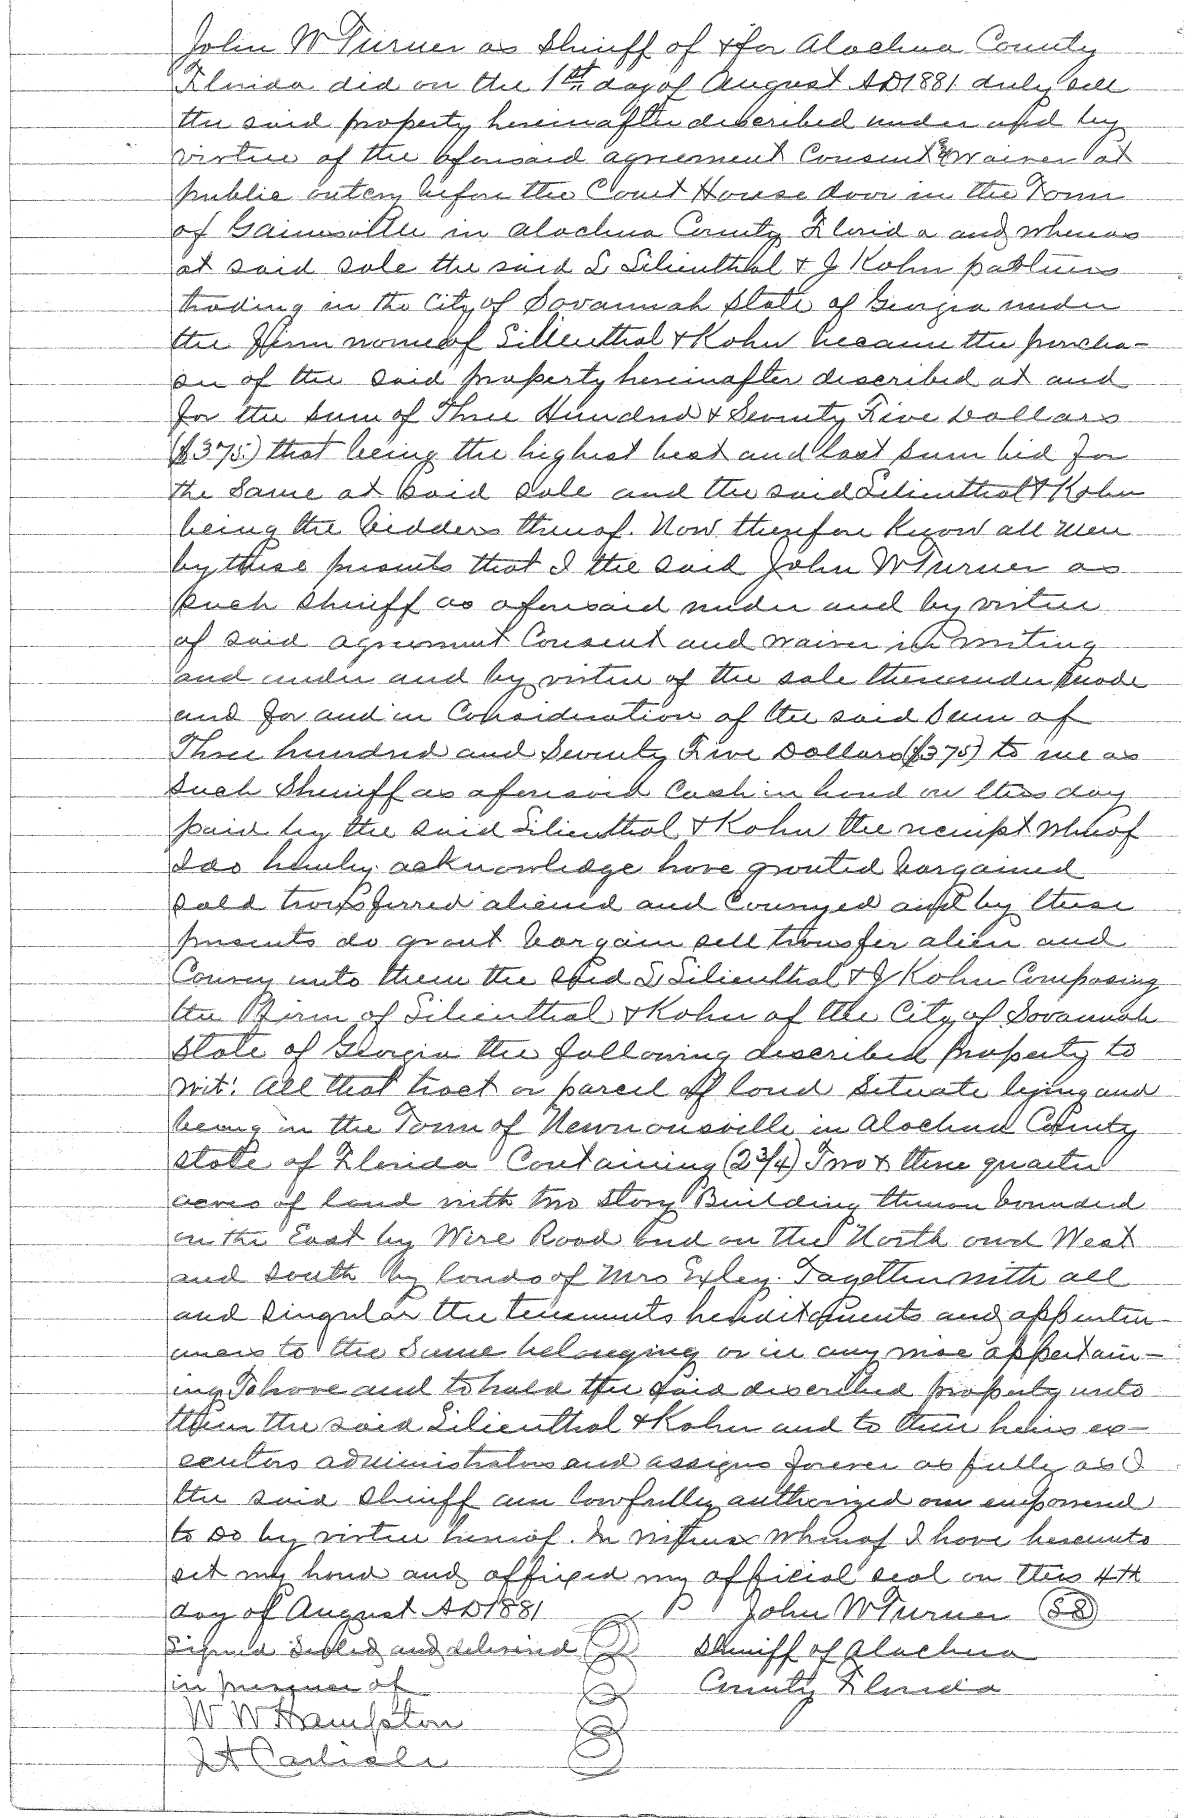 John W Turner as Sheriff of & for Alachua County
Florida did on the 1st day of August AD 1881 duly sell
the said property hereinafter described under and by
virtue of the aforesaid agreement Consent & waiver at
public outcry before the Court House door in the Town
of Gainesville in Alachua County Florida and whereas
at said sale the said L Lilienthal & J Kohn partners
trading in the City of Savannah State of Georgia under
the Firm name of Lilienthal & Kohn became the purcha-
ser of the said property hereinafter described at and
for the sum of Three Hundred & Seventy Five Dollars
($375.) that being the highest best and last sum bid for
the same at said sale and the said Lilienthal & Kohn
being the bidders thereof. Now therefore Know all men
by these presents that I the said John W Turner as
such Sheriff as aforesaid under and by virtue
of said agreement Consent and waiver in writing
and under and by virtue of the sale thereunder made
and for and in Consideration of the said Sum of
Three hundred and Seventy Five Dollars ($375) to me as
such Sheriff as aforesaid Cash in hand on this day
paid by the said Lilienthal & Kohn the receipt whereof
I do hereby acknowledge have granted bargained
sold transferred aliened and Conveyed and by these
presents do grant bargain sell transfer alien and
Convey unto them the said L Lilienthal & J Kohn Composing
the Firm of Lilienthal & Kohn of the City of Savannah
State of Georgia the following described Property to
wit: All that tract or parcel of land situate lying and
being in the Town of Newnansville in Alachua County
State of Florida Containing (2 3/4) Two & three quarter
acres of land with two story Building thereon bounded
on the East by Wire Road and on the North and West
and South by lands of Mrs Exley. Together with all
and singular the tenements hereditaments and appurten-
ances to the Same belonging or in any wise appertain-
ing To have and to hold the said described property unto
them the said Lilienthal & Kohn and to their heirs ex-
ecutors administrators and assigns forever as fully as I
the said Sheriff am lawfully authorized our empowered
to do by virtue hereof. In witness whereof I have hereunto
set my hand and affixed my official seal on this 4th
day of August AD 1881 John W Turner
Signed Sealed and delivered Sheriff of Alachua
in presence of County Florida
W W Hampton
Carlisle